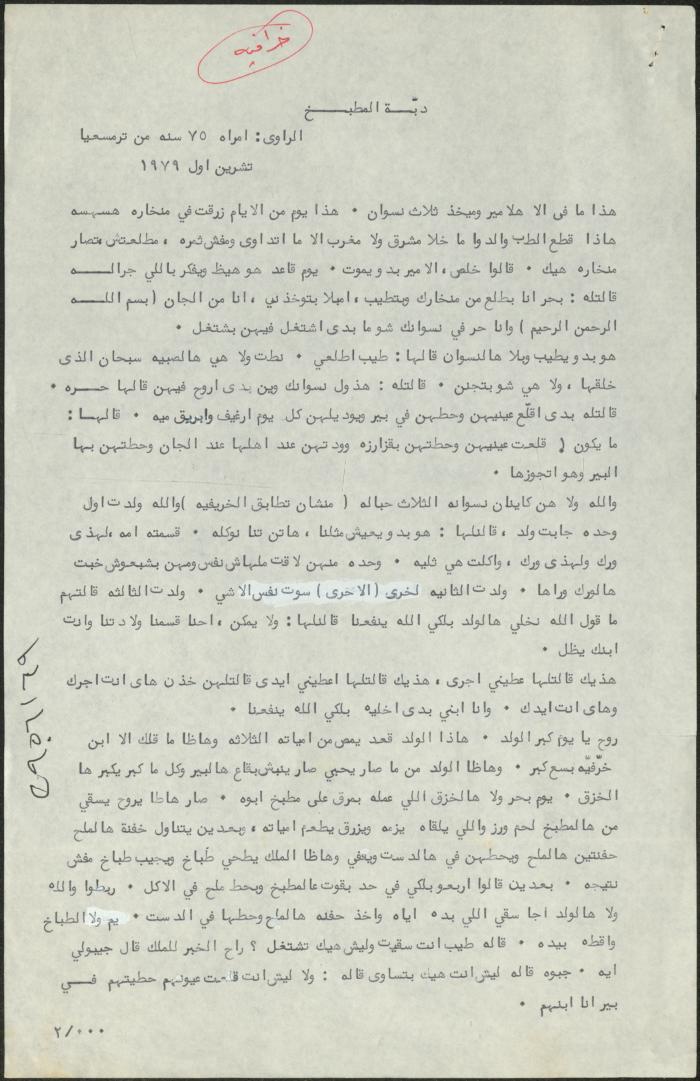 خرافيه
دبّة المطبخ
الراوى: امراه ٧٥ سنه من ترمسعيا
تشرين اول ١٩٧٩
هذا ما فى الا هلامير وميخذ ثلاث نسوان • هذا يوم من الايام زرقت في منخاره هسهسه
هاذا قطع الطب والدوا ما خلا مشرق ولا مغرب الا ما اتداوى ومفش ثمره ، مطلعتش تصار
منخاره هيك • قالوا خلص ، الامير بدو يموت • يوم قاعد هو هيظ ويفكر باللي جراله
قالتله : بحر انا بطلع من منخارك وبتطيب ، امبلا بتوخذني ، انا من الجان ( بسم الله
الرحمن الرحيم ) وانا حر في نسوانك شو ما بدى اشتغل فيهن بشتغل •
هو بدو يطيب وبلا هالنسوان قالها : طيب اطلعي • نطت ولا هي هالصبيه سبحان الذى
خلقها ، ولا هي شو بتجنن • قالتله : هذول نسوانك وين بدى اروح فيهن قالها حره •
قالتله بدى اقلّع عينيهن وحطهن في بير ويوديلهن كل يوم ارغيف وابريق ميه • قالها :
ما يكون ! قلعت عينيهن وحطتهن بقزازه وودتهن عند اهلها عند الجان وحطتهن بها
البير وهو اتجوزها •
والله ولا هن كاينان نسوانه الثلاث حباله ( منشان تطابق الخريفيه ) والله ولدت اول
وحده جابت ولد ، قالنلها : هو بدو يعيش مثلنا ، هاتن تنا نوكله • قسمته امه ، لهذى
ورك ولهذى ورك ، واكلت هي ثليه • وحده منهن لاقت ملهاش نفس ومهن بشبعوش خبت
هالورك وراها • ولدت الثانيه لخرى ( الاخرى ) سوت نفس الاشي • ولدت الثالثه قالتهم
ما قول الله نخلي هالولد بلكي الله ينفعنا قالنلها : ولا يمكن ، احنا قسمنا ولادتنا وانت
ابنك يظل •
هذيك قالتلها عطيني اجرى ، هذيك قالتلها اعطيني ايدى قالتلهن خذن هاى انت اجرك
وهاى انت ايدك • وانا ابني بدى اخليه بلكي الله ينفعنا •
روح يا يوم كبر الولد • هاذا الولد قعد يمص من امياته الثلاثه وهاظا ما قلك الا ابن
خرّفيّه بسع كبر • وهاظا الولد من ما صار يحبي صار ينبش بقاع هالبير وكل ما كبر يكبر ها
الخزق • يوم بحر ولا هالخزق اللي عمله بمرق على مطبخ ابوه • صار هاظا يروح يسقي
من هالمطبخ لحم ورز واللي يلقاه يزمه ويزرق يطعم امياته ، وبعدين يتناول حفنة هالملح
حفنتين هالملح ويحطهن في هالدست ويعفي وهاظا الملك يطحي طباخ ويجيب طباخ مفش
نتيجه • بعدين قالوا اربعو بلكي في حد بقوت عالمطبخ وبحط ملح في الاكل • ربطوا والله
ولا هالولد اجا سقي اللي بده اياه واخذ حفنه هالملح وحطها في الدست • يم ولا الطباخ
واقطه بيده • قاله طيب انت سقيت وليش هيك تشتغل ؟ راح الخبر للملك قال جيبولي
ايه • جبوه قاله ليش انت هيك بتساوى قاله : ولا ليش انت قلعت عيونهم حطيتهم في
بير انا ابنهم •
٢/٠٠٠